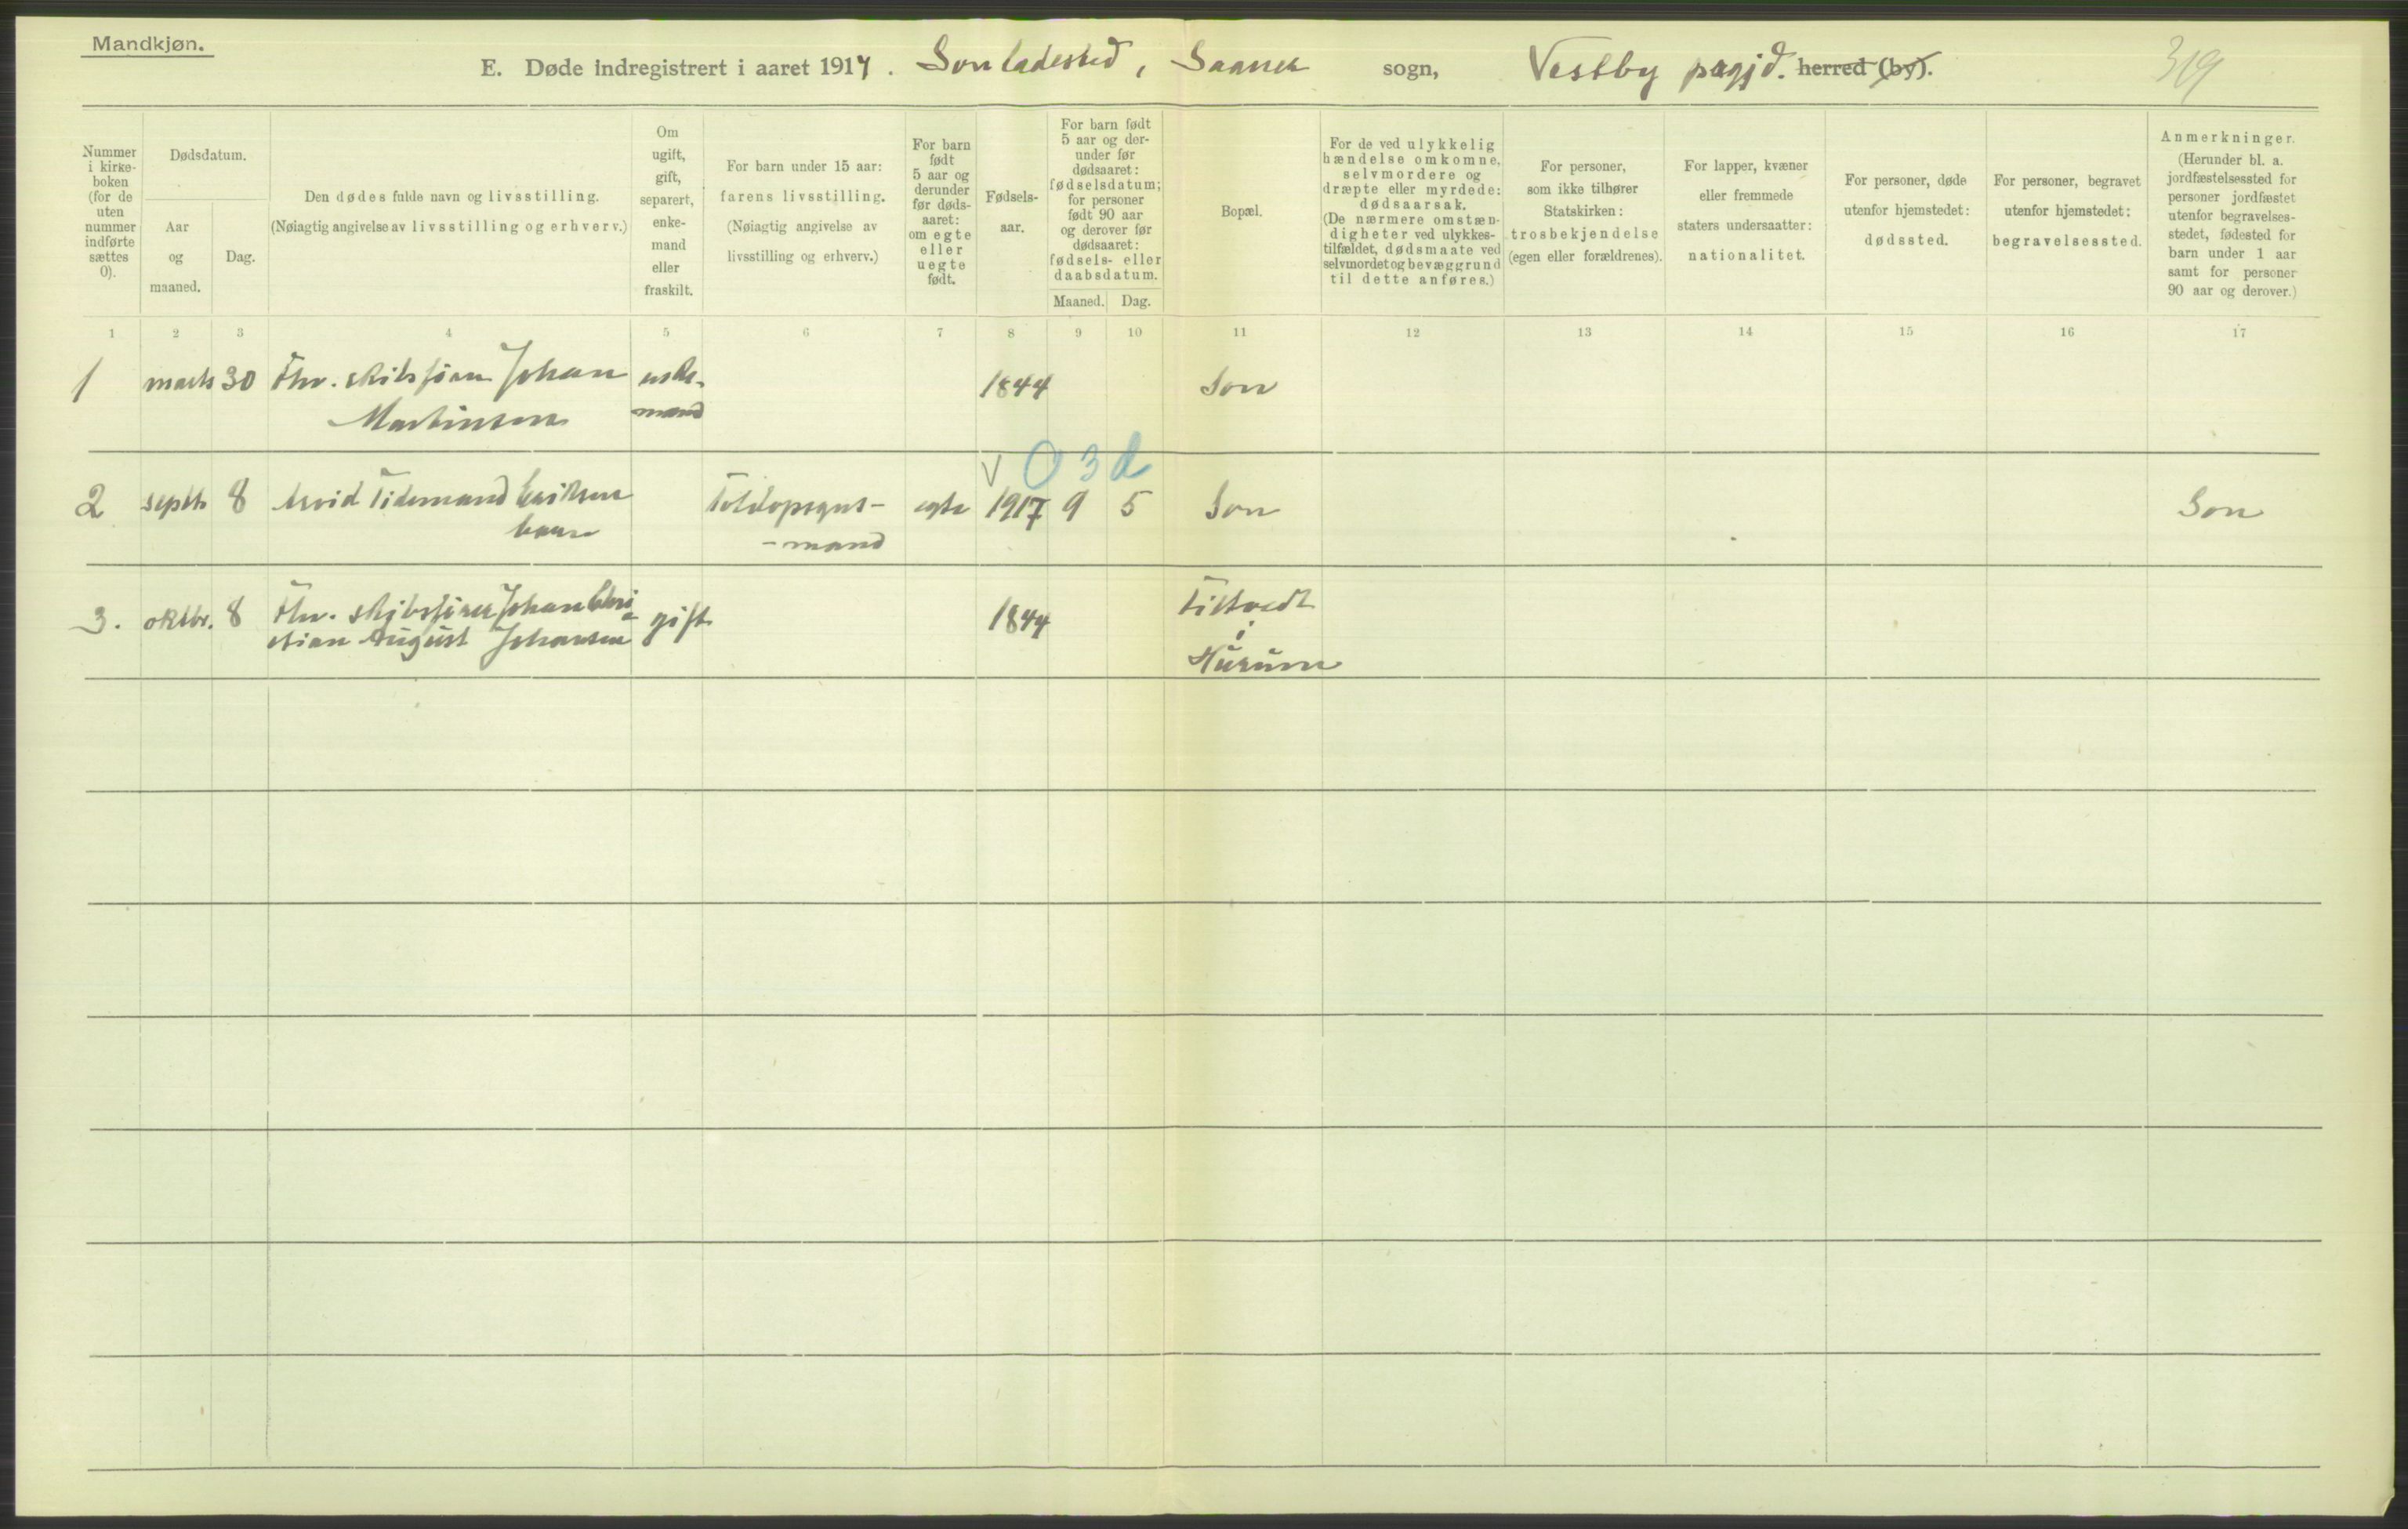 Mandkjøn.
E. Døde indregistrert i aaret 1917. Son ladested, Saaner sogn, Vestby prgjd. herred (by).
319
Nummer i kirke-boken (for de uten nummer indførte sættes 0).
Dødsdatum.
Aar og maaned.
Dag.
Den dødes fulde navn og livsstilling.
(Nøiagtig angivelse av livsstilling og erhverv.)
Om ugift, gift, separert, enke-mand eller fraskilt.
For barn under 15 aar:
farens livsstilling.
(Nøiagtig angivelse av livsstilling og erhverv.)
For barn født 5 aar og derunder før døds-aaret: om egte eller uegte født.
Fødsels-aar.
For barn født 5 aar og der-under før dødsaaret: fødselsdatum; for personer født 90 aar og derover før dødsaaret: fødsels- eller daabsdatum.
Maaned.
Dag.
Bopæl.
For de ved ulykkelig hændelse omkomne, selvmordere og dræpte eller myrdede: dødsaarsak.
(De nærmere omstæn-digheter ved ulykkes-tilfældet, dødsmaate ved selvmordet og bevæggrund til dette anføres.)
For personer, som ikke tilhører Statskirken: trosbekjendelse (egen eller forældrenes).
For lapper, kvæner eller fremmede staters undersaatter: nationalitet.
For personer, døde utenfor hjemstedet: dødssted.
For personer, begravet utenfor hjemstedet: begravelsessted.
Anmerkninger.
(Herunder bl. a. jordfæstelsessted for personer jordfæstet utenfor begravelses-stedet, fødested for barn under 1 aar samt for personer 90 aar og derover.)
1 2 3 4 5 6 7 8 9 10 11 12 13 14 15 16 17
1 marts 30 Fhv. skibsfører Johan enke- 1844 Son
Martinsen mand
V 0 3 d
2 septb 8 Arvid Tidemand Eriksen Toldopsyns- egte 1917 9 5 Son Son
-mand
3. oktbr. 8 Fhv. skibsfører Johan Chri- gift 1844 Tiltvedt
stian August Johansen i
Hurum